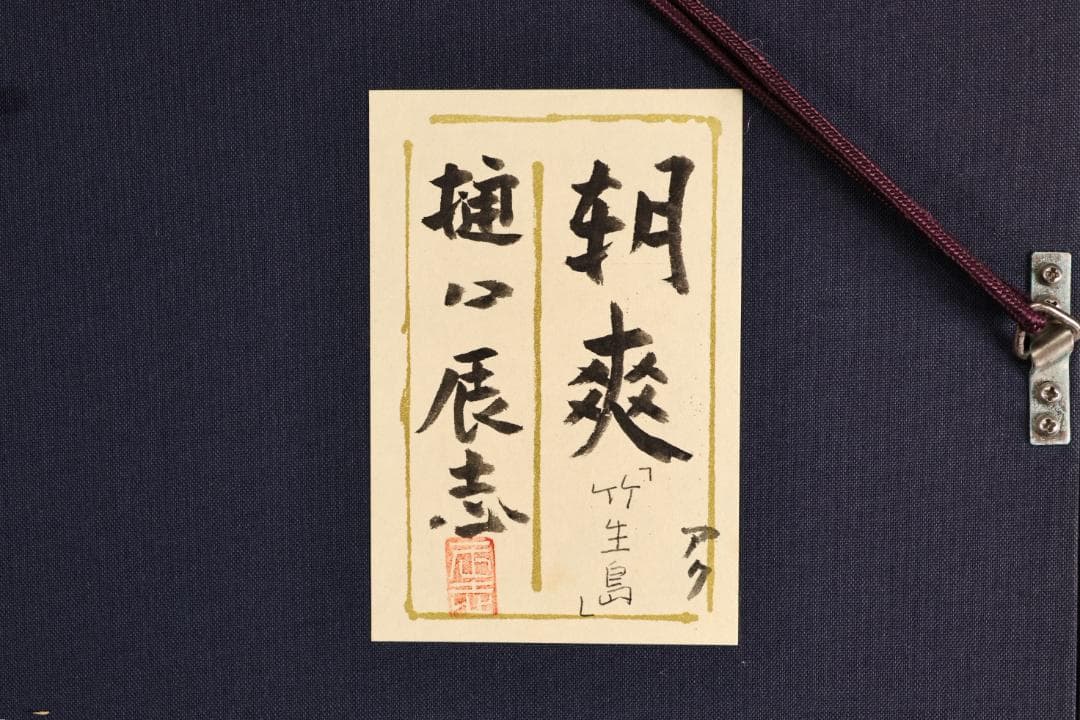 朝爽
「竹生島」
アク
樋口辰志